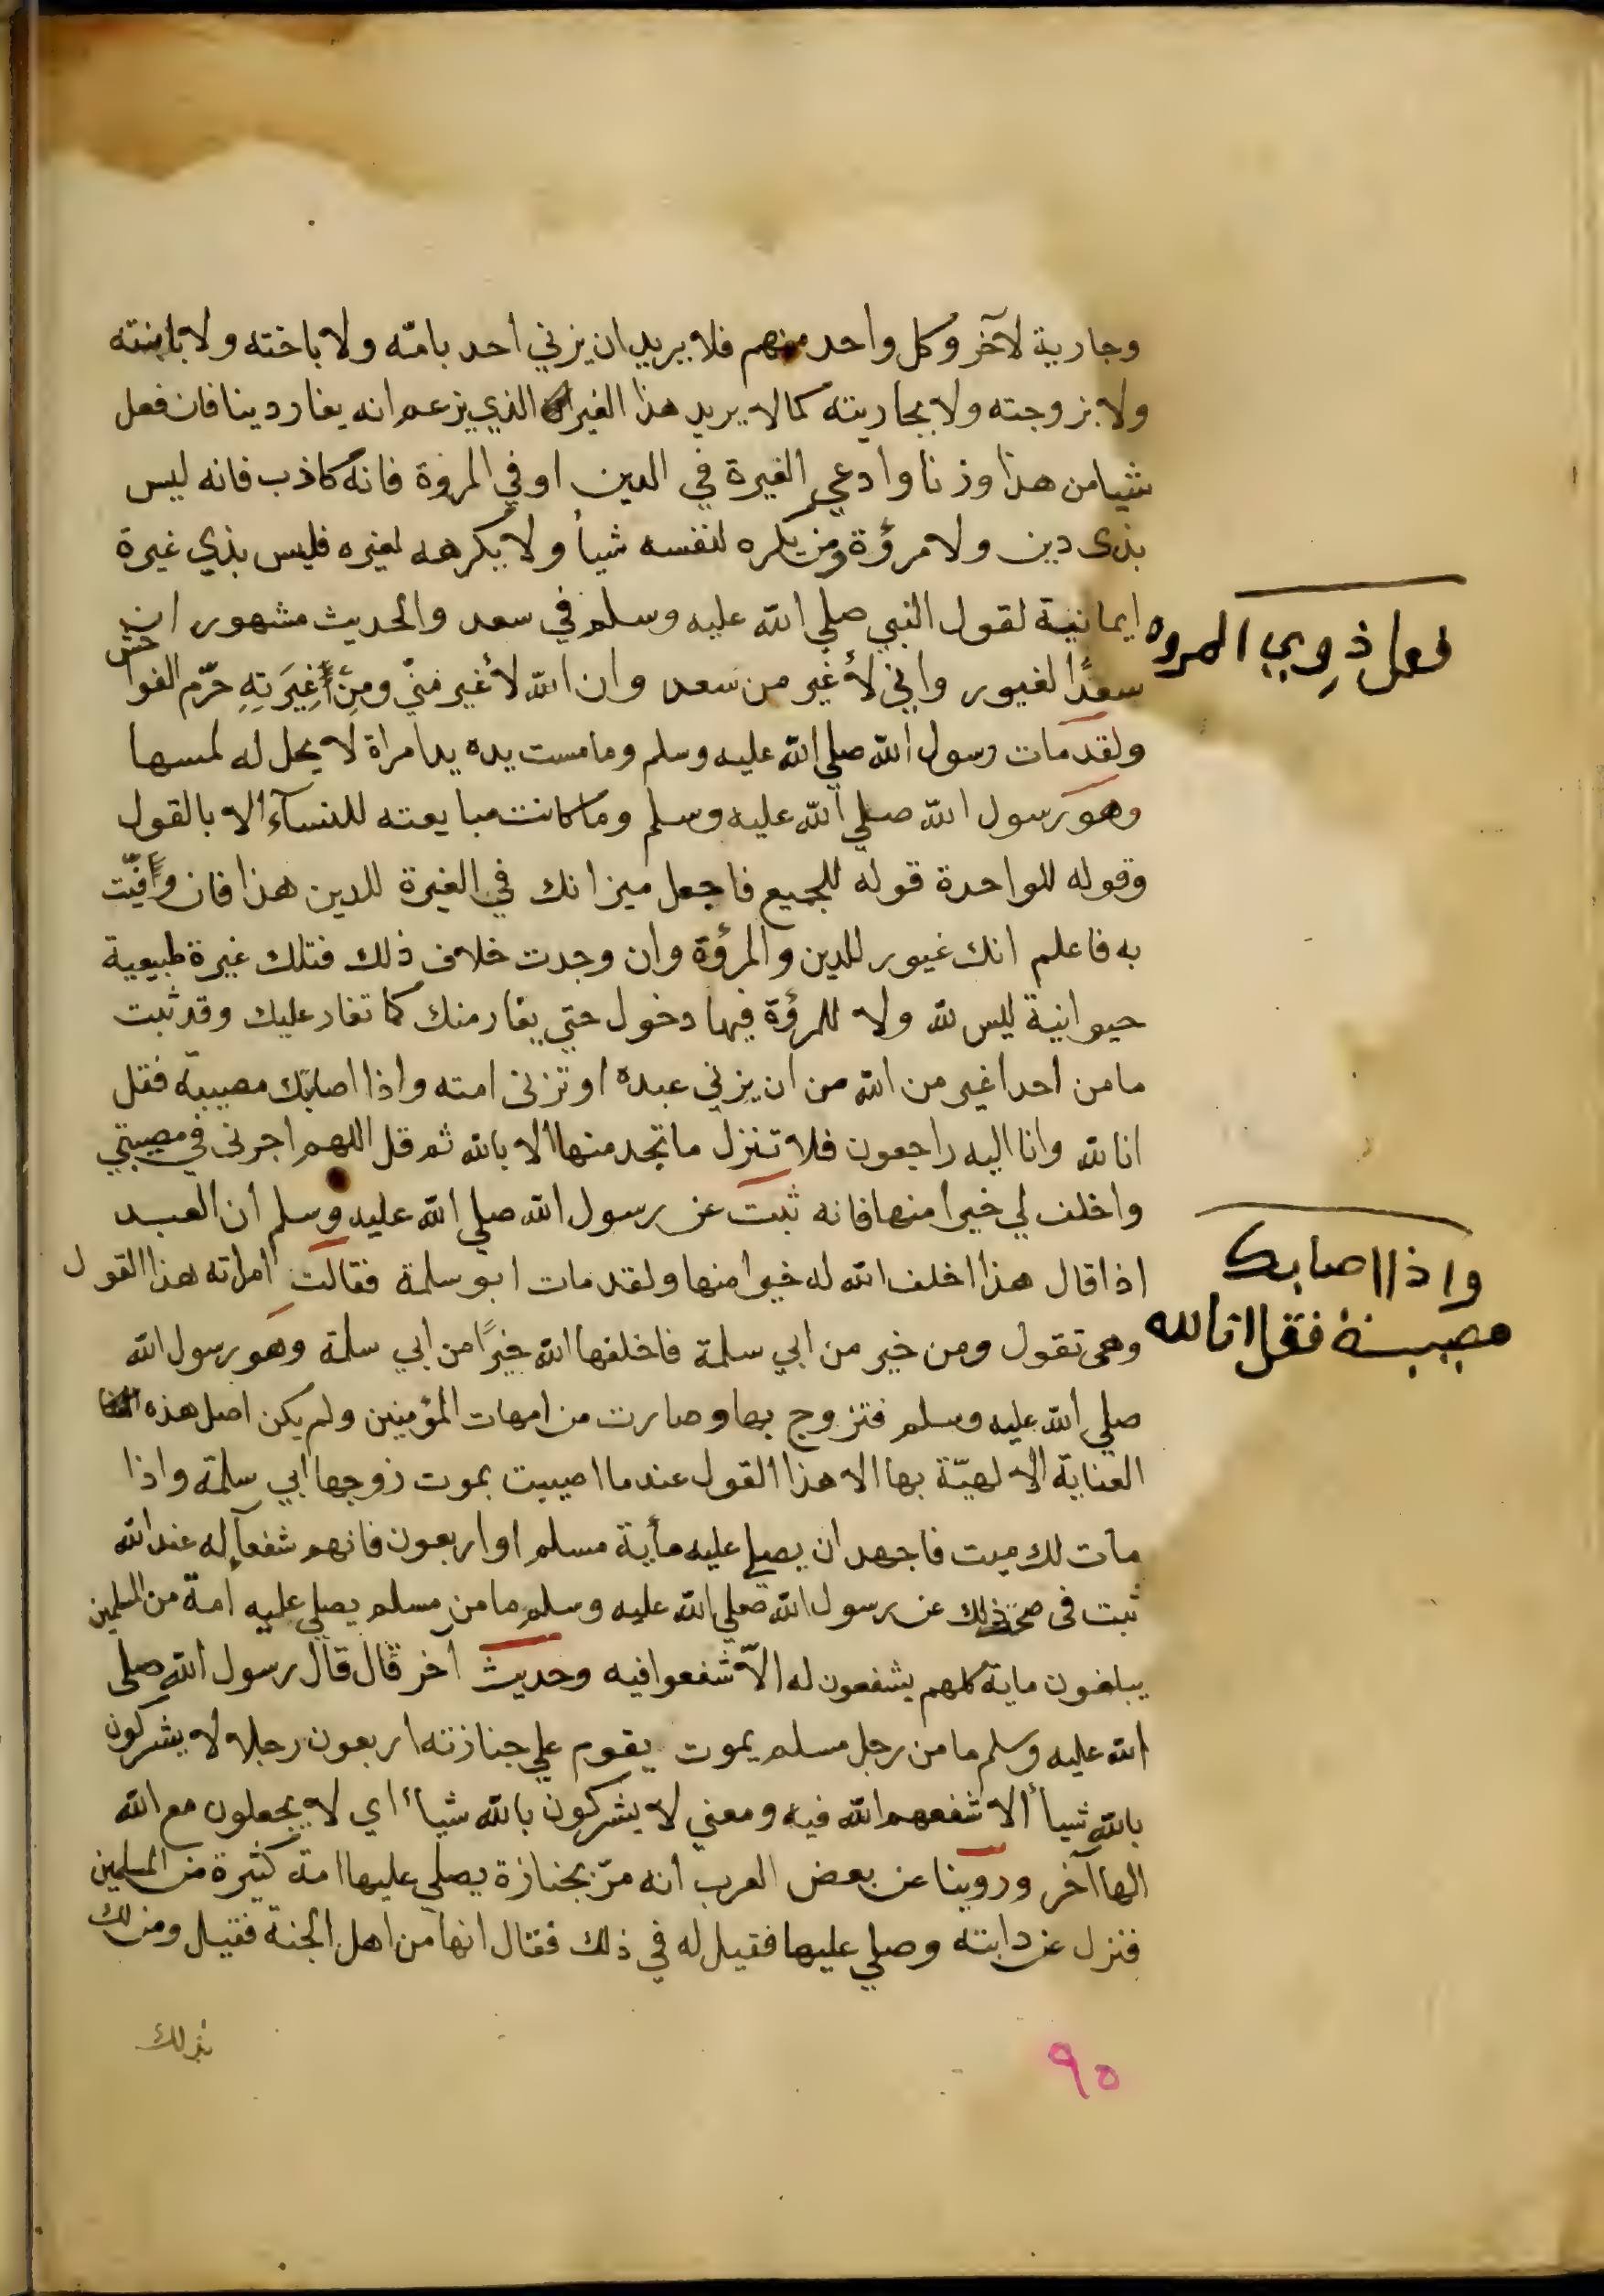 وجارية لآخر وكل واحد منهم فلا يريد ان يزني احد بامّه ولا باخته ولا بابنته
ولا بزوجته ولا بجاريته كما لا يريد هذا الغيران الذي يزعم انه يغار دينا فان فعل
شيا من هذا وزنا وادعي الغيرة في الدين او في المروة فانه كاذب فانه ليس
بذى دين ولا مرؤة ومن يكره لنفسه شيأ ولا يكرهه لغيره فليس بذي غيرة
ايمانية لقول النبي صلي الله عليه وسلم في سعد والحديث مشهور ان
سعدًا لغيور واني لأغير من سعد وان الله لأغير منيّ ومِنْ غِيَرَتِهِ حرّم الفواحش
ولقد مات رسول الله صلي الله عليه وسلم وما مست يده يد امراة لا يحل له لمسها
وهو رسول الله صلي الله عليه وسلم وما كانت مبايعته للنسآء الا بالقول
وقوله للواحدة قوله للجميع فاجعل ميزانك في الغيرة للدين هذا فان وَفّيت
به فاعلم انك غيور للدين والمرؤة وان وجدت خلاف ذلك فتلك غيرة طبيعية
حيوانية ليس لله ولا للمرؤة فيها دخول حتي يغار منك كما تغار عليك وقد ثبت
ما من احد اغير من الله من ان يزني عبده او تزنى امته واذا اصابتك مصيبة فقل
انا لله وانا اليه راجعون فلا تنزل ما تجد منها الا بالله ثم قل اللهم اجرنى في مصيبتي
واخلف لي خيرا منها فانه ثبت عن رسول الله صلي الله عليه وسلم ان العبد
اذا قال هذا اخلف الله له خيرا منها ولقد مات ابو سلمة فقالت امراته هذا القول
وهى تقول ومن خير من ابي سلمة فاخلفها الله خيرًا من ابي سلمة وهو رسول الله
صلي الله عليه وسلم فتزوج بها وصارت من امهات المؤمنين ولم يكن اصل هذه
العناية الالهيّة بها الا هذا القول عندما اصيبت بموت زوجها ابي سلمة واذا
مات لك ميت فاجهد ان يصلي عليه مأية مسلم او اربعون فانهم شفعآء له عند الله
ثبت فى ذلك عن رسول الله صلي الله عليه وسلم ما من مسلم يصلي عليه امة من المسلمين
يبلغون ماية كلهم يشفعون له الاّ شفعوا فيه وحديث آخر قال قال رسول الله صلى
الله عليه وسلم ما من رجل مسلم يموت يقوم علي جنازته اربعون رجلا لا يشركون
بالله شيأ الا شفعهم الله فيه ومعني لا يشركون بالله شيأ اي لا يجعلون مع الله
الها آخر وروينا عن بعض العرب انه مرّ بجنازة يصلي عليها امة كثيرة من المسلمين
فنزل عن دابته وصلي عليها فقيل له في ذلك فقال انها من اهل الجنة فقيل ومن لك
بذلك
فعل ذوي المروه
واذا اصابك
مصيبة فقل انا لله
٩٥